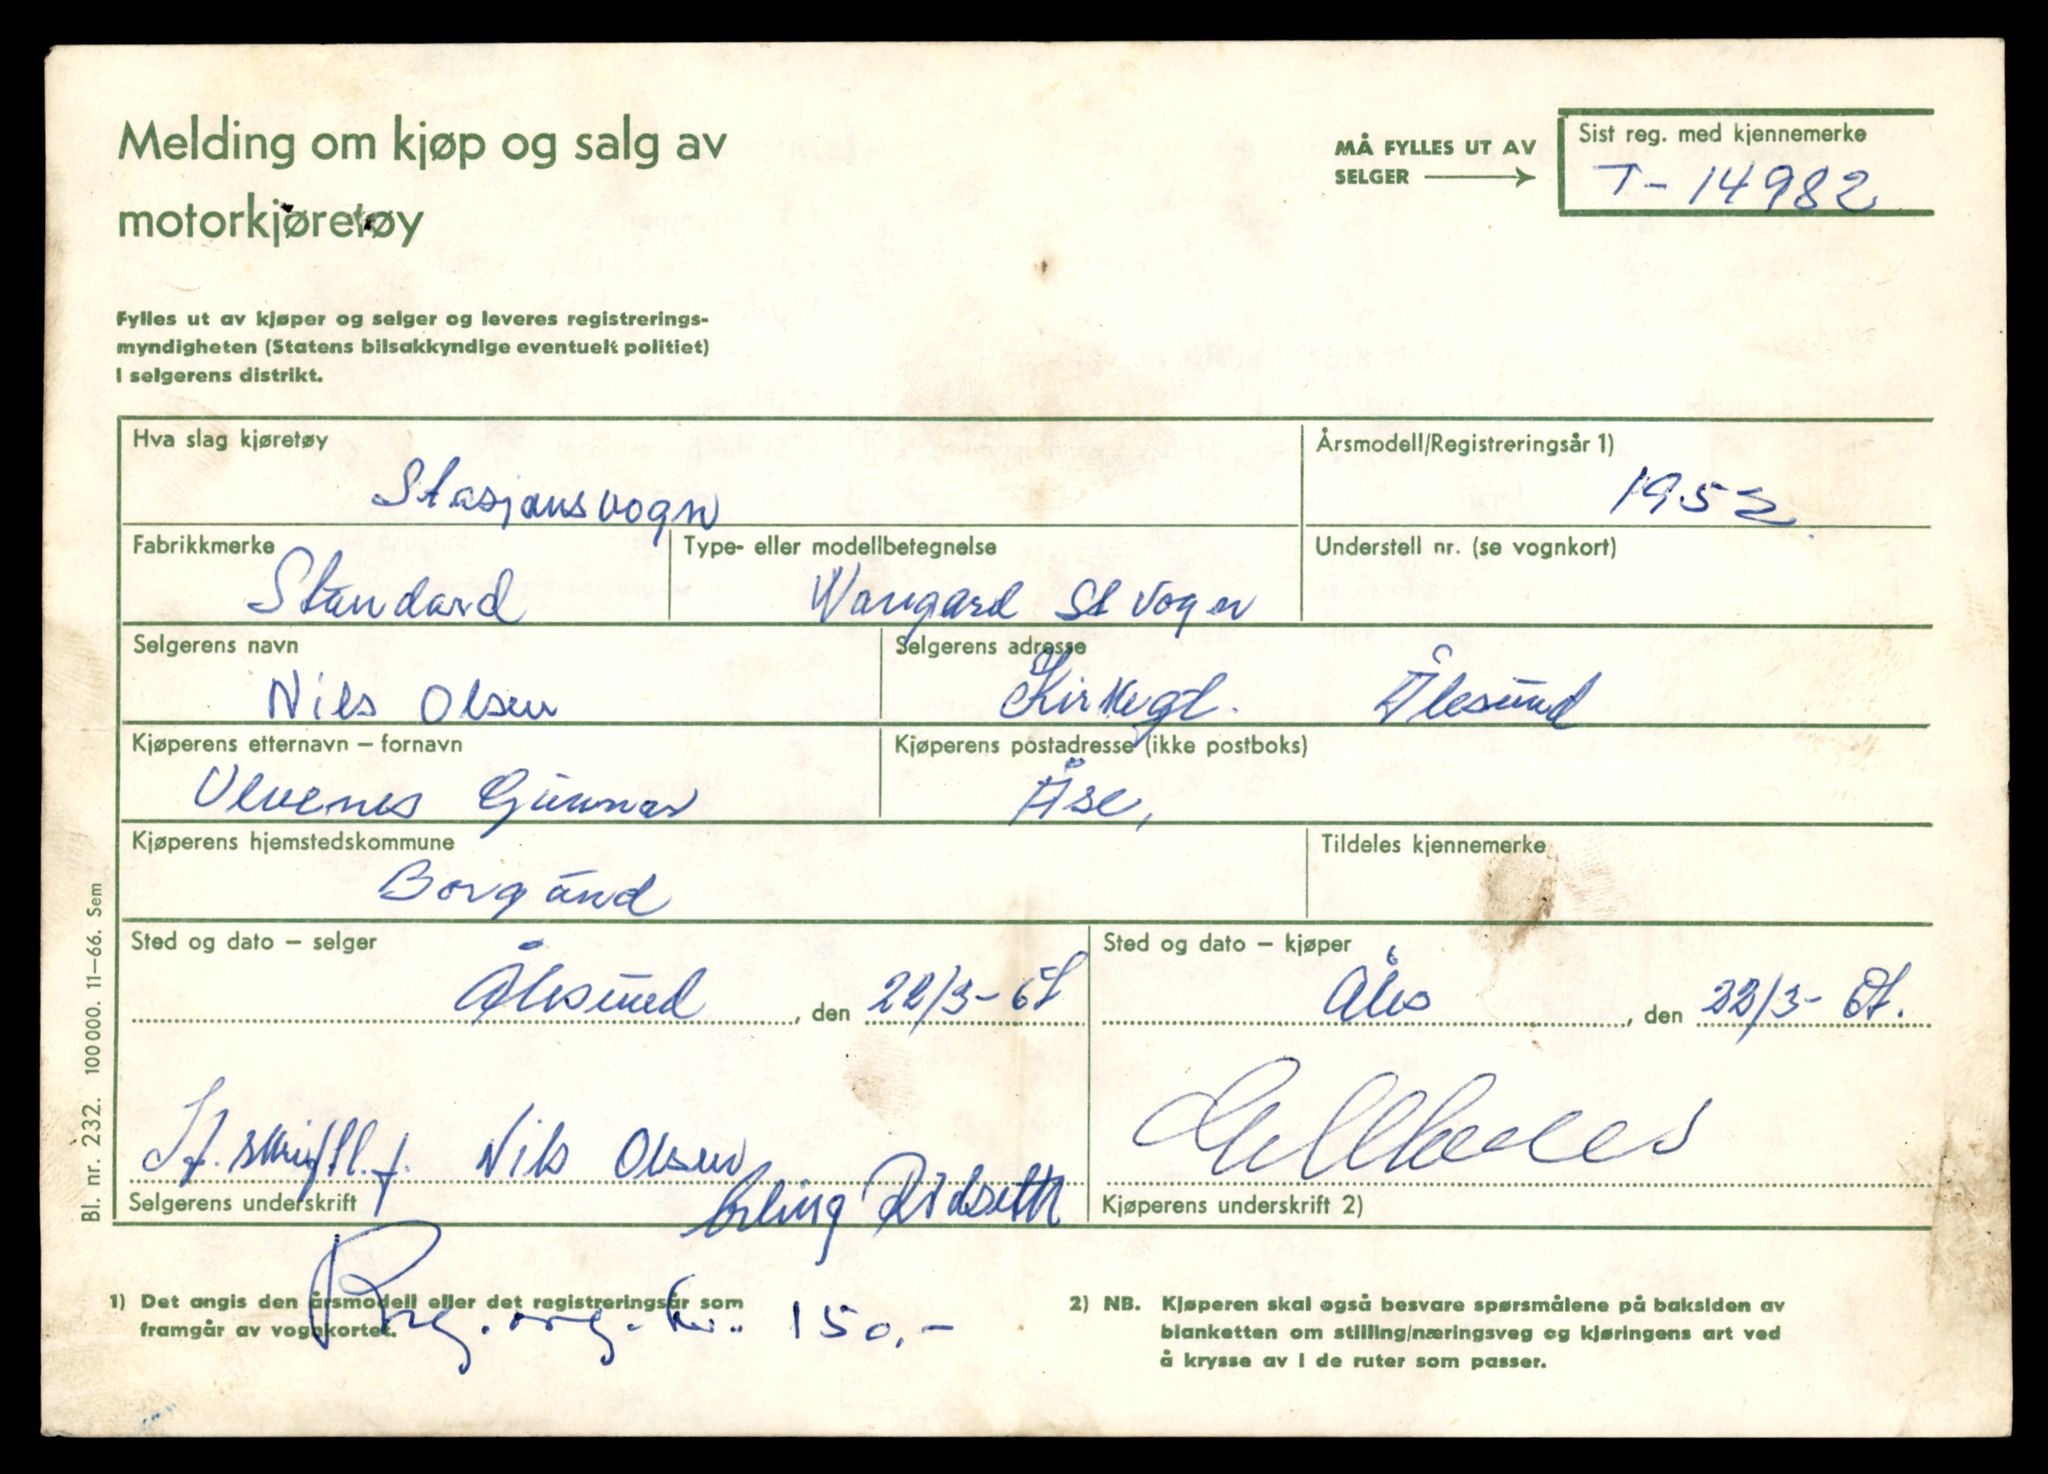 Melding om kjøp og salg av
motorkjøretøy
MÅ FYLLES UT AV
SELGER
Sist reg. med kjennemerke
T-14982
Fylles ut av kjøper og selger og leveres registrerings-
myndigheten (Statens bilsakkyndige eventuelt politiet)
i selgerens distrikt.
Hva slag kjøretøy
Stasjonsvogn
Årsmodell/Registreringsår 1)
1952
Fabrikkmerke
Standard
Type- eller modellbetegnelse
Wangard St vogn
Understell nr. (se vognkort)
Selgerens navn
Nils Olsen
Selgerens adresse
Kirkegt. Ålesund
Kjøperens etternavn – fornavn
Ulvenes Gunnar
Kjøperens postadresse (ikke postboks)
Åse,
Kjøperens hjemstedskommune
Borgund
Tildeles kjennemerke
Sted og dato – selger
Ålesund, den 22/3-67
Sted og dato – kjøper
Åles, den 22/3-67.
f. Nils Olsen
Erling Rødseth
Selgerens underskrift
Kjøperens underskrift 2)
1) Det angis den årsmodell eller det registreringsår som
framgår av vognkortet.
Reg. avg. kr. 150,-
2) NB. Kjøperen skal også besvare spørsmålene på baksiden av
blanketten om stilling/næringsveg og kjøringens art ved
å krysse av i de ruter som passer.
Bl. nr. 232. 100 000. 11–66. Sem